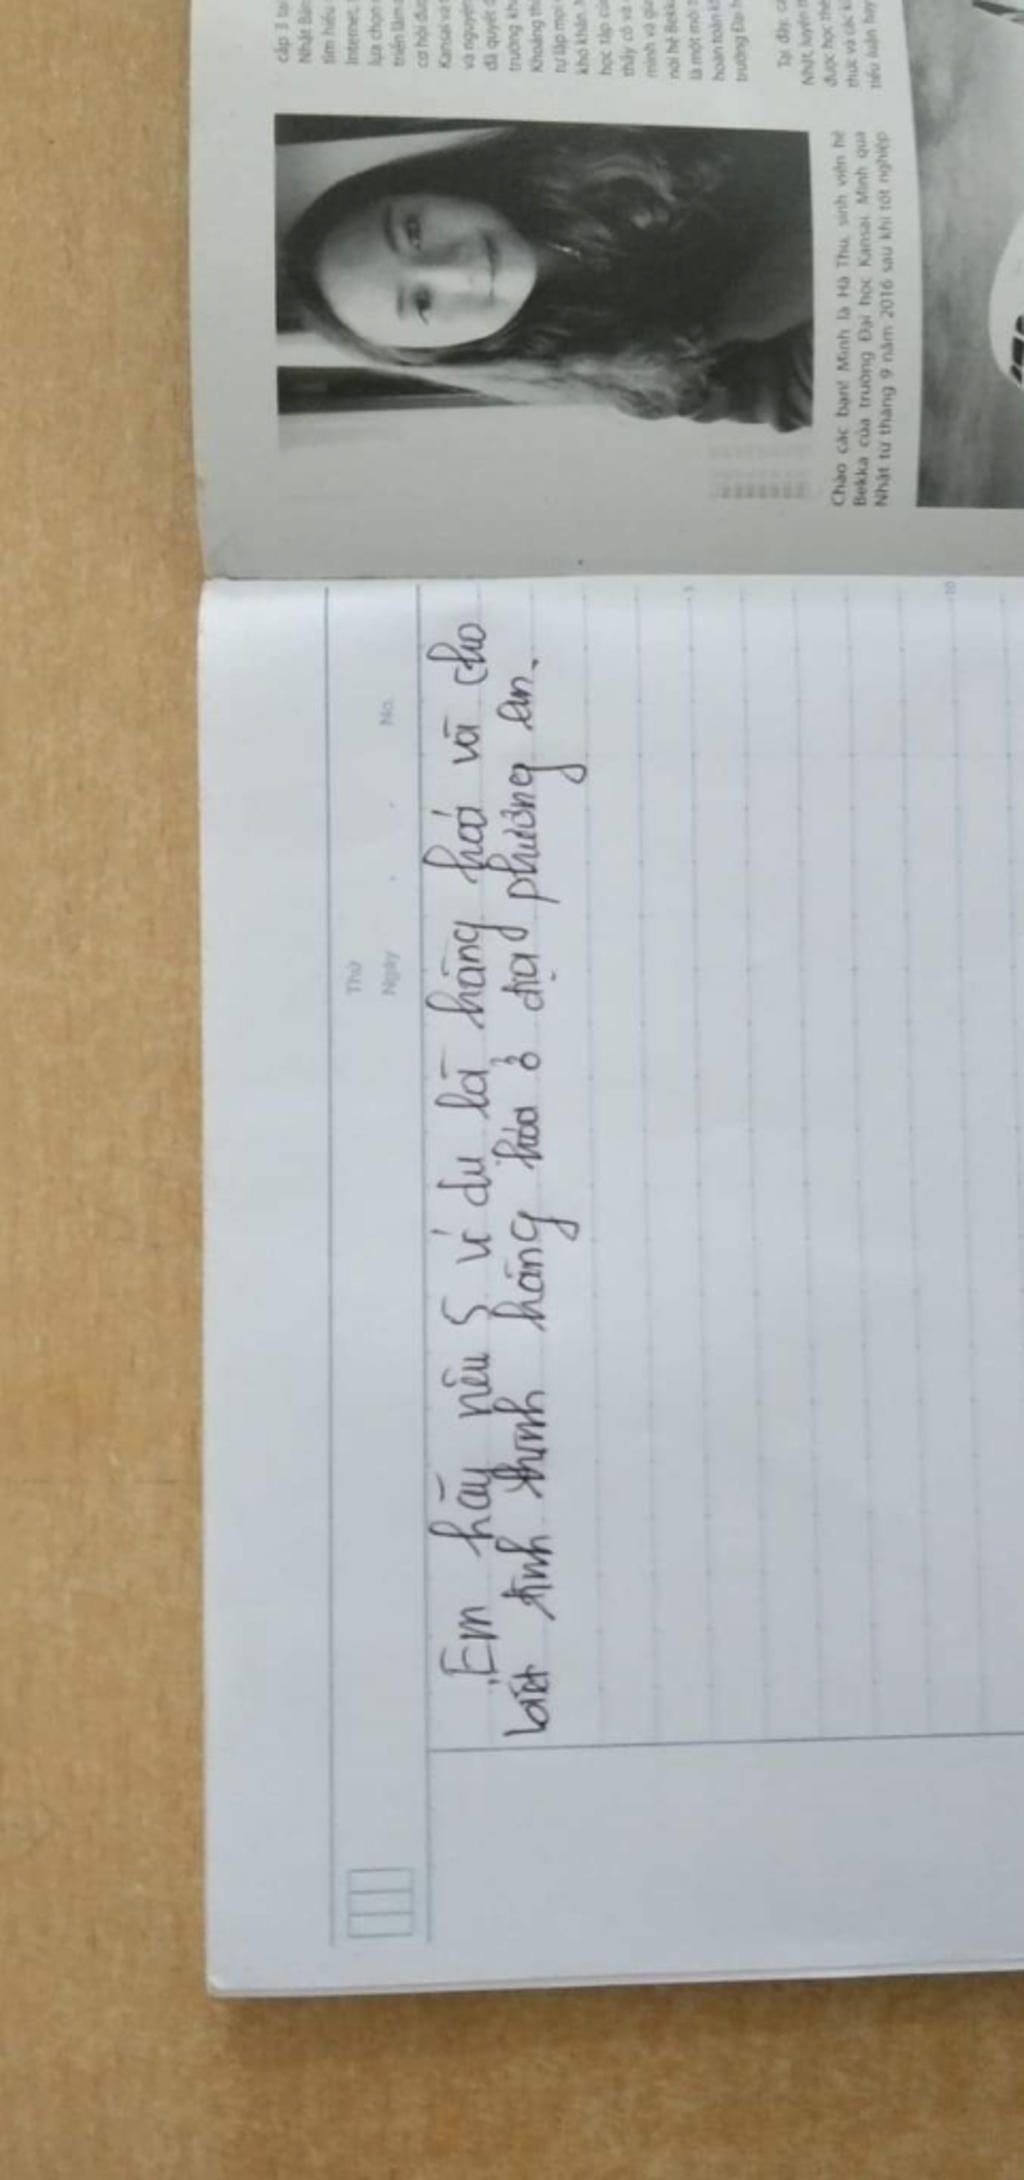 Em hãy nêu 5 ví dụ là hàng hoá và cho
biết tình thình hàng hóa ở địa phương em.
Thứ
Ngày . . No.
5
10
Chào các bạn! Mình là Hà Thu, sinh viên hệ
Bekka của trường Đại học Kansai. Mình qua
Nhật từ tháng 9 năm 2016 sau khi tốt nghiệp
cấp 3 tại
Nhật Bản
tìm hiểu
Internet,
lựa chọn
triển lãm
cơ hội đư
Kansai và
và nguyện
đã quyết đ
trường
Khoảng
tự lập mọi
khó khăn.
học tập
thầy cô và
mình và
nói hệ Bekka
là một
hoàn toàn
trường Đại
Tại đây,
Nhật, luyện
được học
thức và các
tiểu luận hay